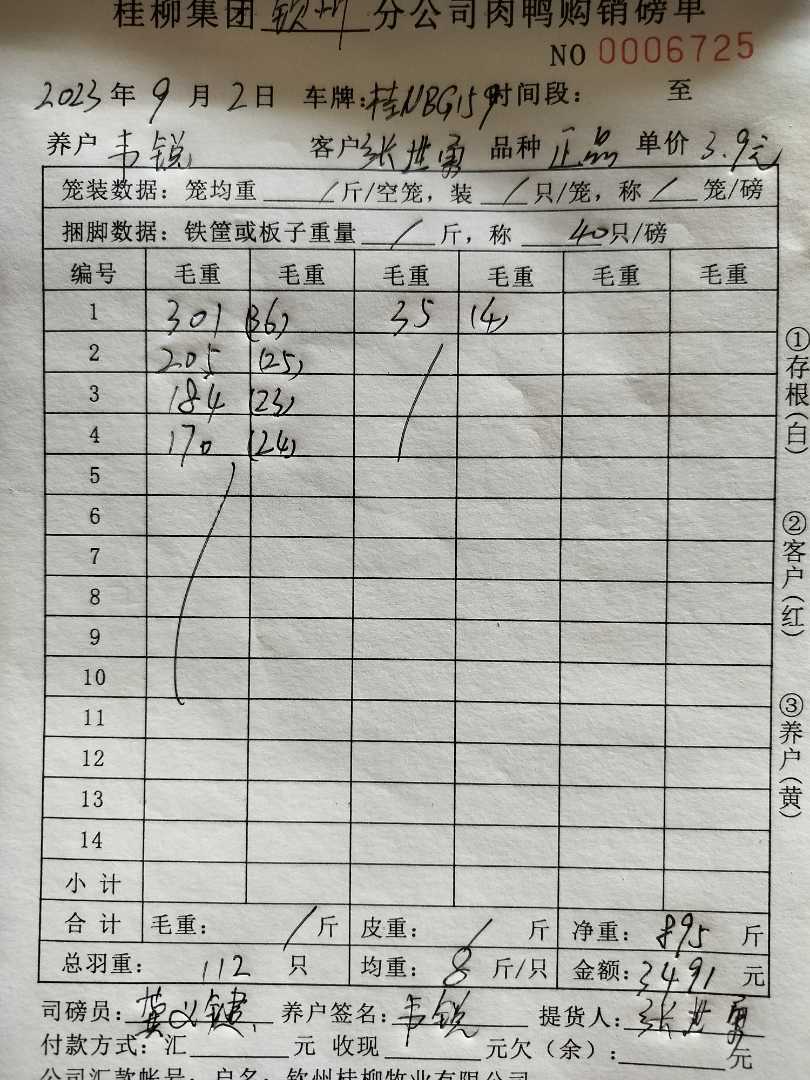 桂柳集团钦州分公司肉鸭购销磅单
NO 0006725
2023年9月2日 车牌:桂NBG159 时间段: 至
养户 韦锐 客户 张世勇 品种 正品 单价 3.9元
笼装数据:笼均重 / 斤/空笼,装 / 只/笼,称 / 笼/磅
捆脚数据:铁筐或板子重量 / 斤,称 40只/磅
编号 毛重 毛重 毛重 毛重 毛重 毛重
1 301 (36) 35 (4)
2 205 (25)
3 184 (23)
4 170 (24)
5
6
7
8
9
10
11
12
13
14
小计
合计 毛重: / 斤 皮重: / 斤 净重: 895 斤
总羽重: 112 只 均重: 8 斤/只 金额: 3491 元
司磅员: 养户签名: 韦锐 提货人: 张世勇
付款方式:汇 元 收现 元欠(余): 元
公司汇款帐号:户名:钦州桂柳牧业有限公司
①存根(白)
②客户(红)
③养户(黄)